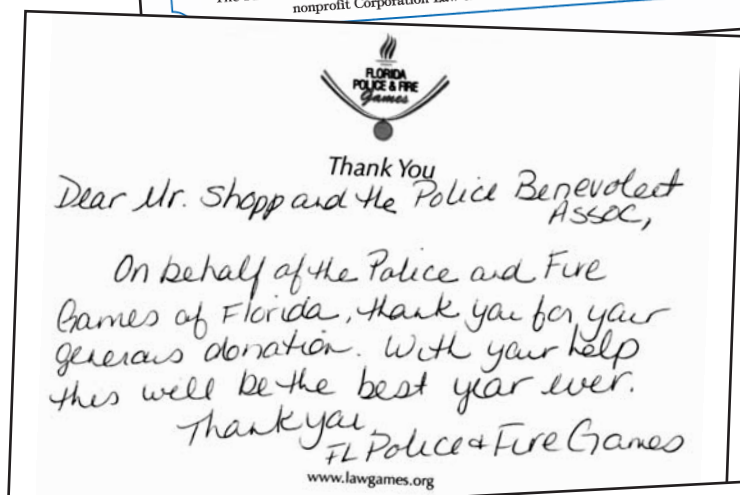 nonprofit Corporation
FLORIDA
POLICE & FIRE
Games
Thank You
Dear Mr. Shopp and the Police Benevolent
Assoc,
On behalf of the Police and Fire
Games of Florida, thank you for your
generous donation. With your help
this will be the best year ever.
Thank you,
FL Police & Fire Games
www.lawgames.org